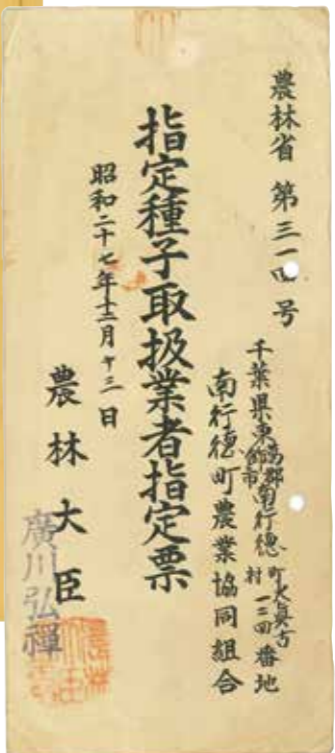 農林省 第三一四号
千葉県東葛飾郡市南行徳町村大字真古一二四番地
南行徳町農業協同組合
指定種子取扱業者指定票
昭和二十七年十二月十三日
農林大臣
廣川弘禪